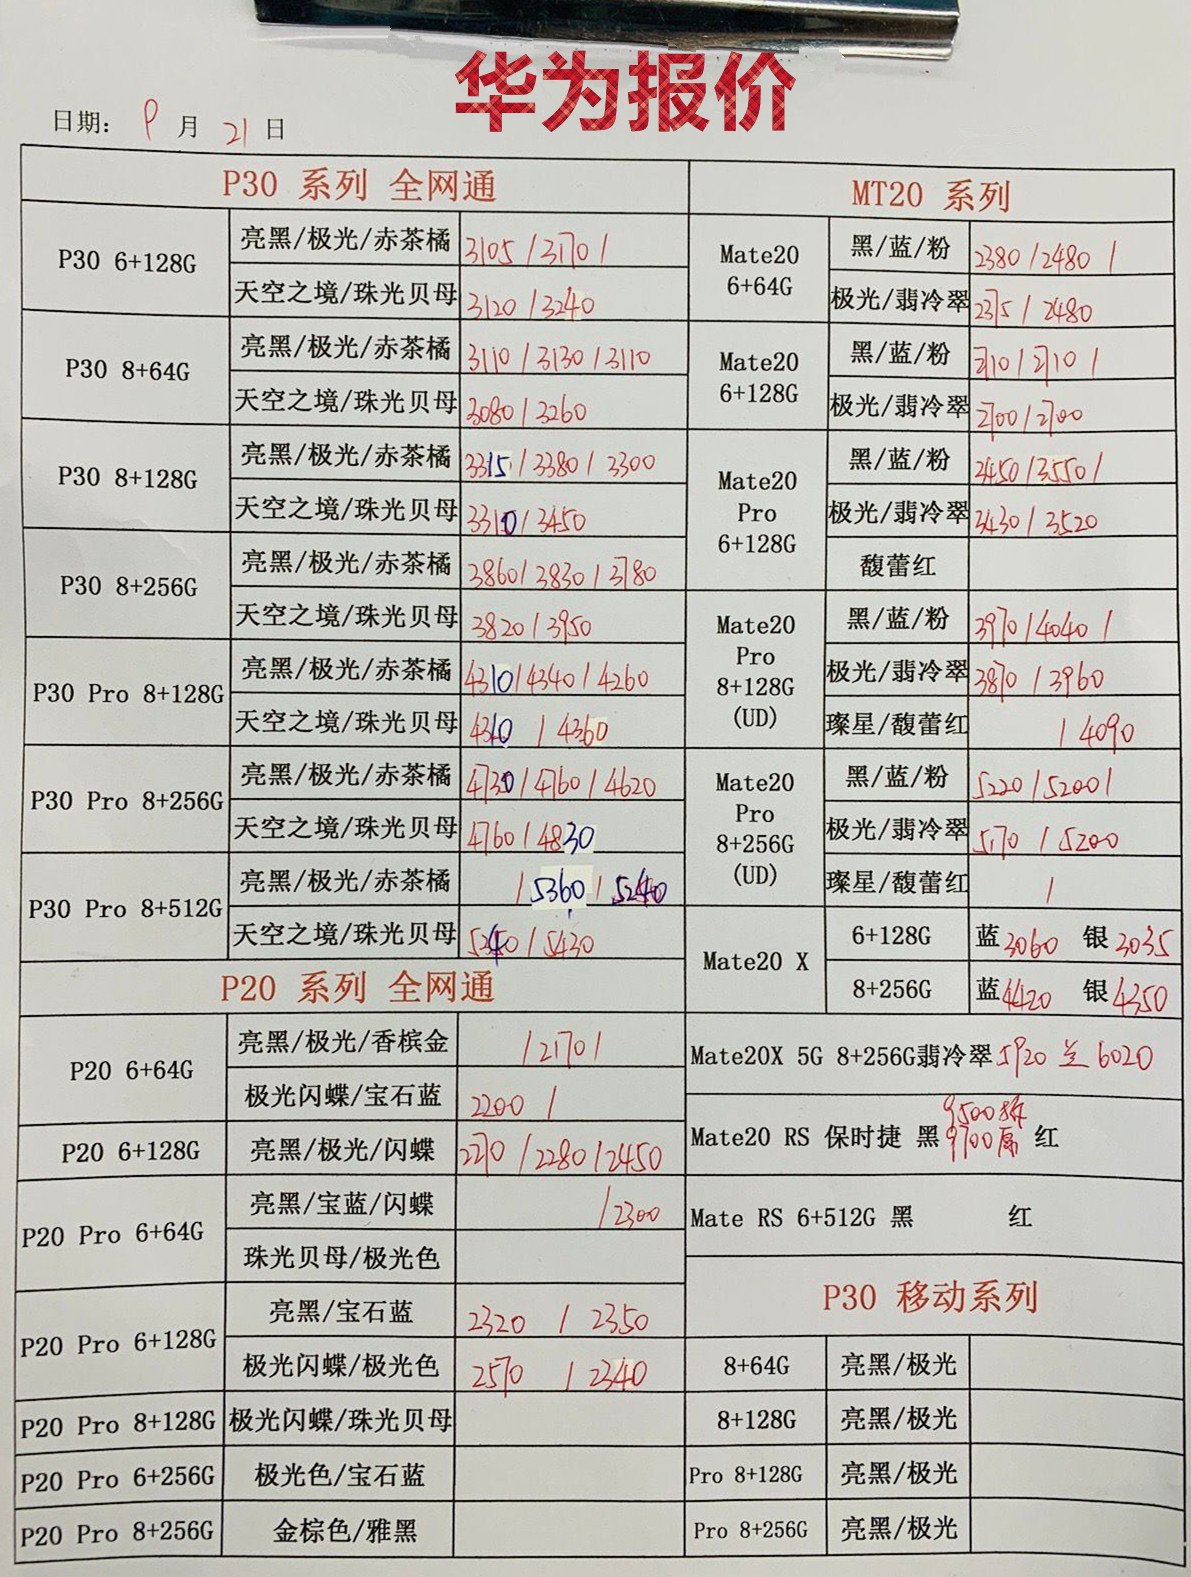 华为报价
日期: 9 月 21 日
P30 系列 全网通
P30 6+128G
亮黑/极光/赤茶橘 3105/3170/
天空之境/珠光贝母 3120/3240
P30 8+64G
亮黑/极光/赤茶橘 3110/3130/3110
天空之境/珠光贝母 3080/3260
P30 8+128G
亮黑/极光/赤茶橘 3315/3380/3300
天空之境/珠光贝母 3310/3450
P30 8+256G
亮黑/极光/赤茶橘 3860/3830/3780
天空之境/珠光贝母 3820/3950
P30 Pro 8+128G
亮黑/极光/赤茶橘 4310/4340/4260
天空之境/珠光贝母 4310/4360
P30 Pro 8+256G
亮黑/极光/赤茶橘 4730/4760/4620
天空之境/珠光贝母 4760/4830
P30 Pro 8+512G
亮黑/极光/赤茶橘 /5360/5240
天空之境/珠光贝母 /5430
P20 系列 全网通
P20 6+64G
亮黑/极光/香槟金 /2170/
极光闪蝶/宝石蓝 2200/
P20 6+128G
亮黑/极光/闪蝶 2270/2280/2450
P20 Pro 6+64G
亮黑/宝蓝/闪蝶 /2300
珠光贝母/极光色
P20 Pro 6+128G
亮黑/宝石蓝 2320/2350
极光闪蝶/极光色 2570/2340
P20 Pro 8+128G
极光闪蝶/珠光贝母
P20 Pro 6+256G
极光色/宝石蓝
P20 Pro 8+256G
金棕色/雅黑
MT20 系列
Mate20
6+64G
黑/蓝/粉 2380/2480/
极光/翡冷翠 2375/2480
Mate20
6+128G
黑/蓝/粉 2710/2710/
极光/翡冷翠 2700/2700
Mate20
Pro
6+128G
黑/蓝/粉 3450/3550/
极光/翡冷翠 3430/3520
馥蕾红
Mate20
Pro
8+128G
(UD)
黑/蓝/粉 3970/4040/
极光/翡冷翠 3870/3960
璨星/馥蕾红 /4090
Mate20
Pro
8+256G
(UD)
黑/蓝/粉 5220/5200/
极光/翡冷翠 5170/5200
璨星/馥蕾红 /
Mate20 X
6+128G 蓝3060 银3035
8+256G 蓝4420 银4350
Mate20X 5G 8+256G翡冷翠5920 兰6020
9500拆
Mate20 RS 保时捷 黑 9700 红
Mate RS 6+512G 黑 红
P30 移动系列
8+64G 亮黑/极光
8+128G 亮黑/极光
Pro 8+128G 亮黑/极光
Pro 8+256G 亮黑/极光